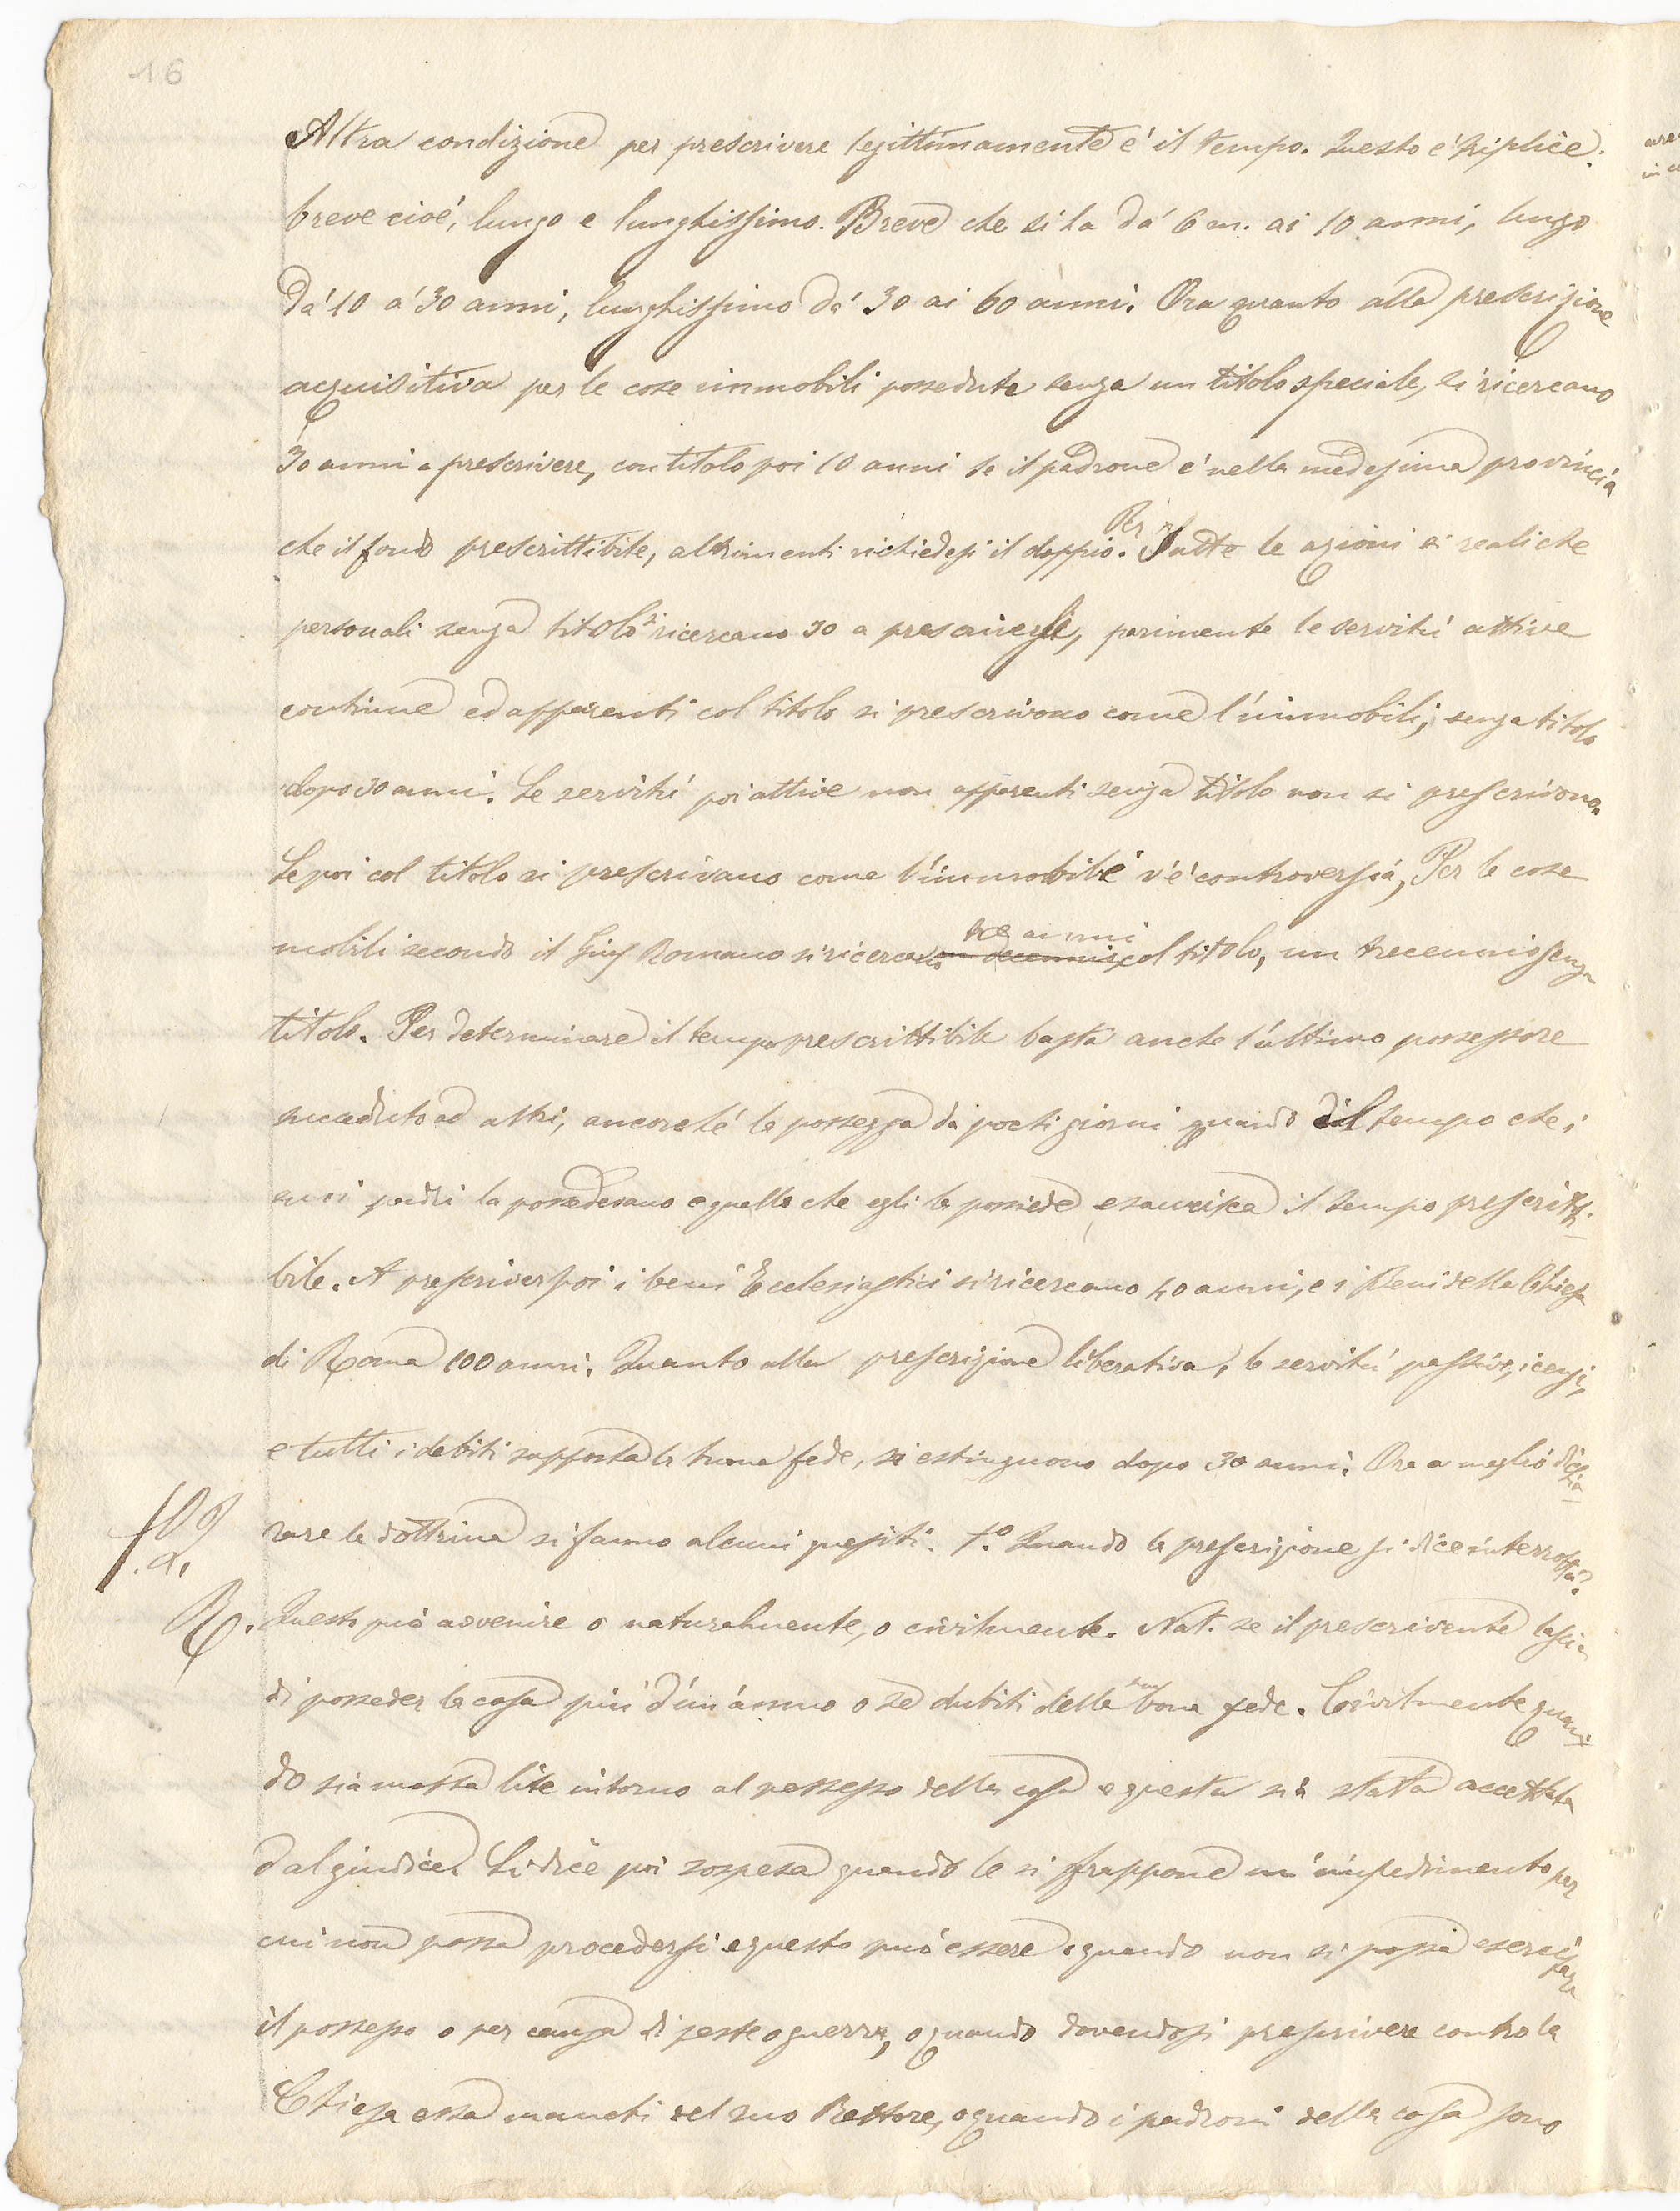 16
Altra condizione per prescrivere legittimamente é il tempo. Questo é triplice:
breve cioé, lungo e lunghissimo. Breve che si ha dá 6 m. ai 10 anni, lungo
dá 10 á 30 anni, lunghissimo dá 30 ai 60 anni. Ora quanto alla prescrizione
acquisitiva per le cose immobili possedute senza un titolo speciale, si ricercano
30 anni a prescrivere, con titolo poi 10 anni se il padrone é nella medesima provincia
che il fondo prescrittibile, altrimenti richiedesi il doppio. Per tutte le azioni si reali che
personali senza titolo si ricercano 30 a prescriverle, parimente le servitú attive
continue ed apparenti col titolo si prescrivono come l'immobili; senza titolo
dopo 30 anni. Le servitú poi attive non apparenti senza titolo non si prescrivono.
Se poi col titolo si prescrivano come l'immobile v'é controversia, Per le cose
mobili secondo il Gius Romano si ricercano un decennio tre anni col titolo, un trecennio senza
titolo. Per determinare il tempo prescrittibile basta anche l'ultimo possessore
succeduto ad altri, ancorché la possegga da pochi giorni quando il tempo che i
suoi padri la possedevano e quello che egli la possiede esaurisca il tempo prescritti-
bile. A prescriver poi i beni Ecclesiastici si ricercano 40 anni, e i Beni della Chiesa
di Roma 100 anni. Quanto alla prescrizione liberativa, le servitú passive, i censi,
e tutti i debiti supposta la buona fede, si estinguono dopo 30 anni. Ora a meglio dichia-
rare la dottrina si fanno alcuni quesiti. 1.º Quando la prescrizione si dice interrotta?
R. Questo può avvenire o naturalmente, o civilmente. Nat. se il prescrivente lascia
di posseder la cosa più d'un anno o se dubiti della sua bona fede. Civilmente quan-
do sia mossa lite intorno al possesso della cosa e questa sia stata accettata
dal giudice. Si dice poi sospesa quando le si frappone un impedimento per
cui non possa procedersi e questo può essere quando non si possa esercitare
il possesso o per causa di peste o guerra, o quando dovendosi prescrivere contro la
Chiesa essa manchi del suo Rettore, o quando i padroni della cosa sono